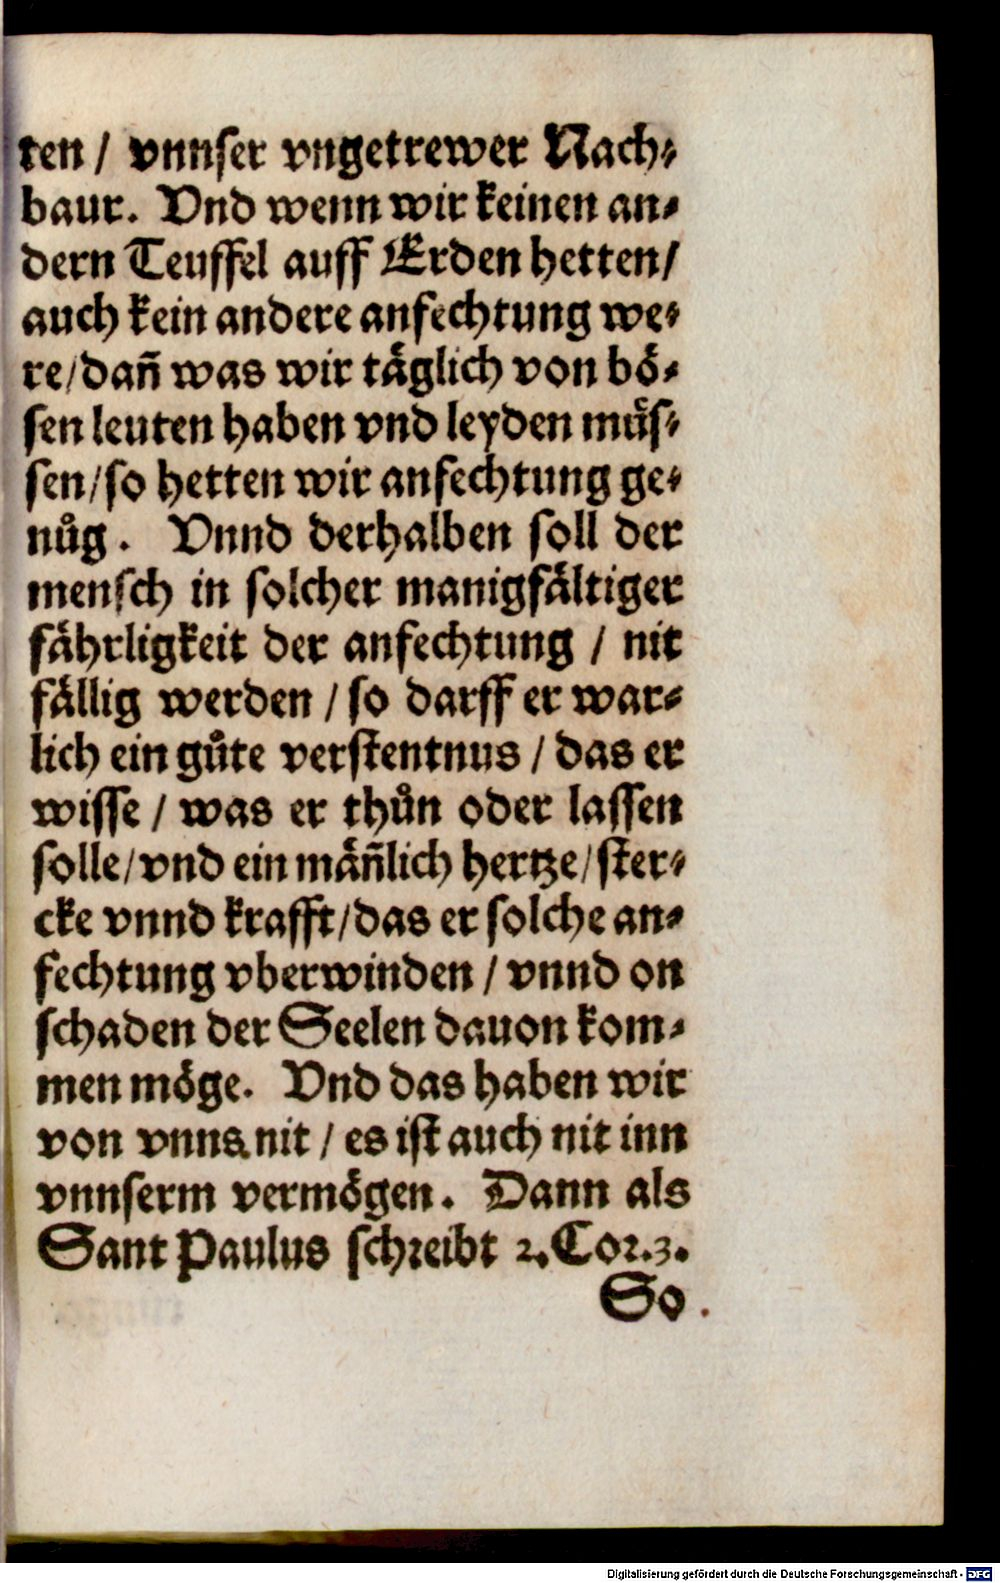 ten / vnnser vngetrewer Nach⸗
baur. Vnd wenn wir keinen an⸗
dern Teuffel auff Erden hetten/
auch kein andere anfechtung we⸗
re/dañ was wir täglich von bö⸗
sen leuten haben vnd leyden müs⸗
sen/so hetten wir anfechtung ge⸗
nůg. Vnnd derhalben soll der
mensch in solcher manigfältiger
fährligkeit der anfechtung / nit
fällig werden / so darff er war⸗
lich ein gůte verstentnus / das er
wisse / was er thůn oder lassen
solle/vnd ein mäñlich hertze/ster⸗
cke vnnd krafft/das er solche an⸗
fechtung vberwinden / vnnd on
schaden der Seelen dauon kom⸗
men möge. Vnd das haben wir
von vnns nit / es ist auch nit inn
vnnserm vermögen. Dann als
Sant Paulus schreibt 2. Cor. 3.
So
Digitalisierung gefördert durch die Deutsche Forschungsgemeinschaft - DFG